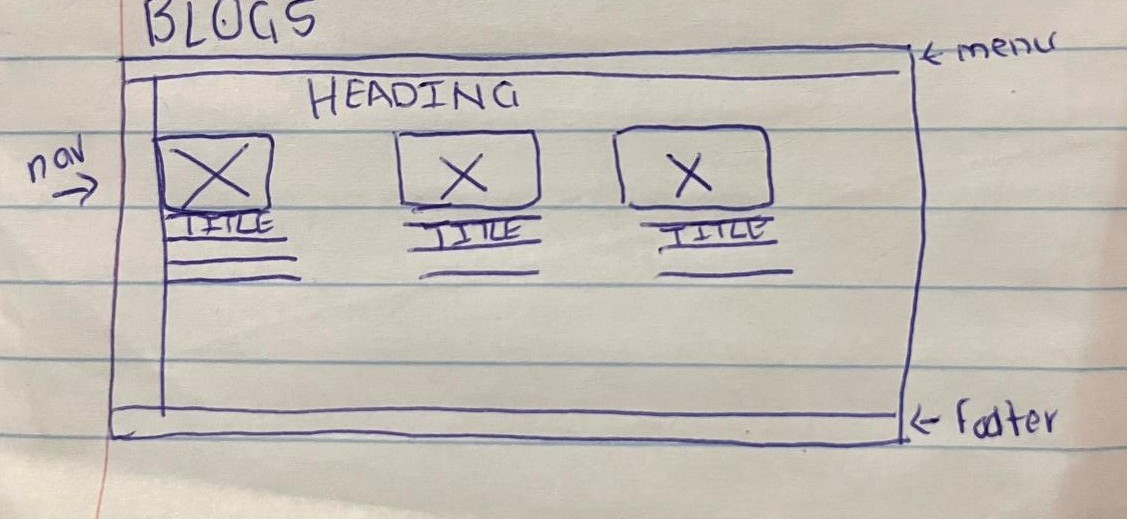 BLOGS
← menu
HEADING
nav →
TITLE TITLE TITLE
← footer